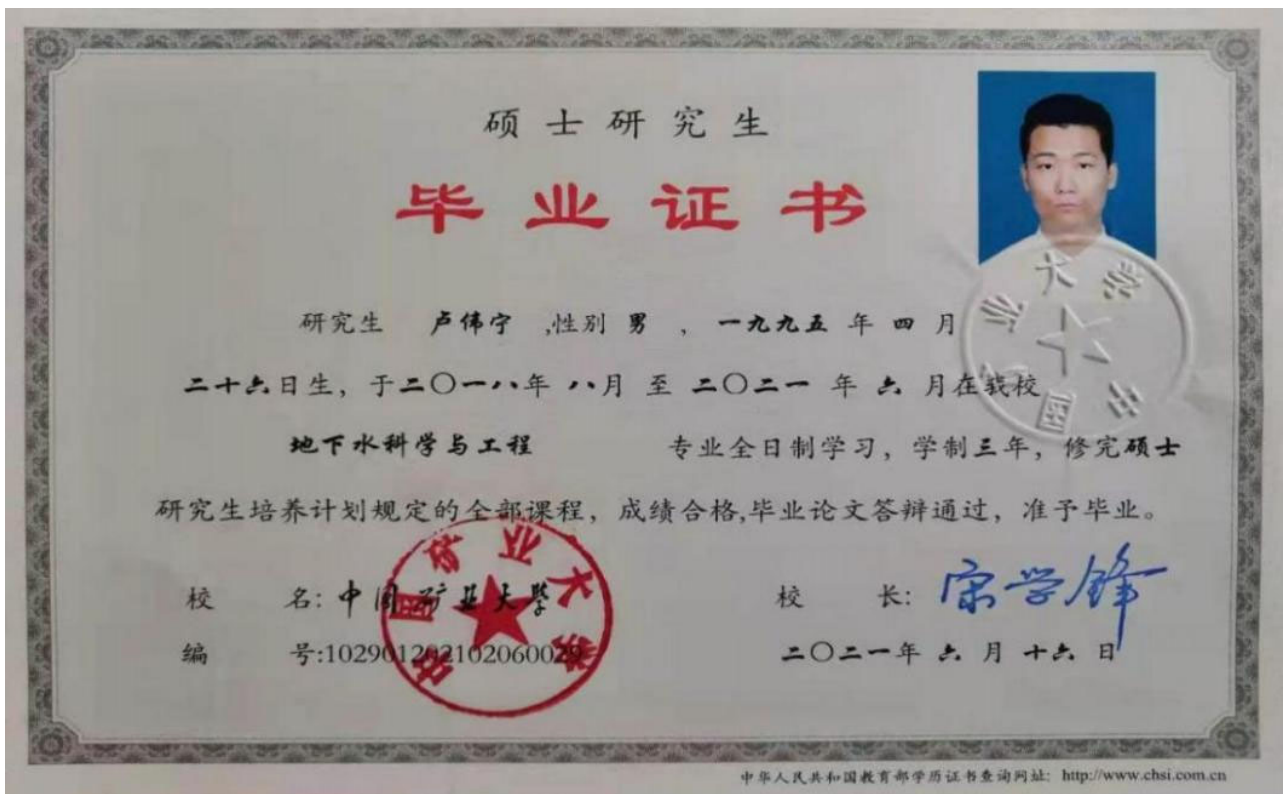 硕士研究生
毕业证书
研究生 卢伟宁 ,性别 男 , 一九九五 年 四 月
二十六日生, 于二〇一八年 八月 至 二〇二一 年 六 月在我校
地下水科学与工程 专业全日制学习, 学制三年, 修完硕士
研究生培养计划规定的全部课程, 成绩合格,毕业论文答辩通过, 准予毕业。
校 名: 中国矿业大学
校 长: 宋学锋
编 号:102901202102060029
二〇二一年 六 月 十六 日
中国矿业大学
中国矿业大学
中华人民共和国教育部学历证书查询网址: http://www.chsi.com.cn